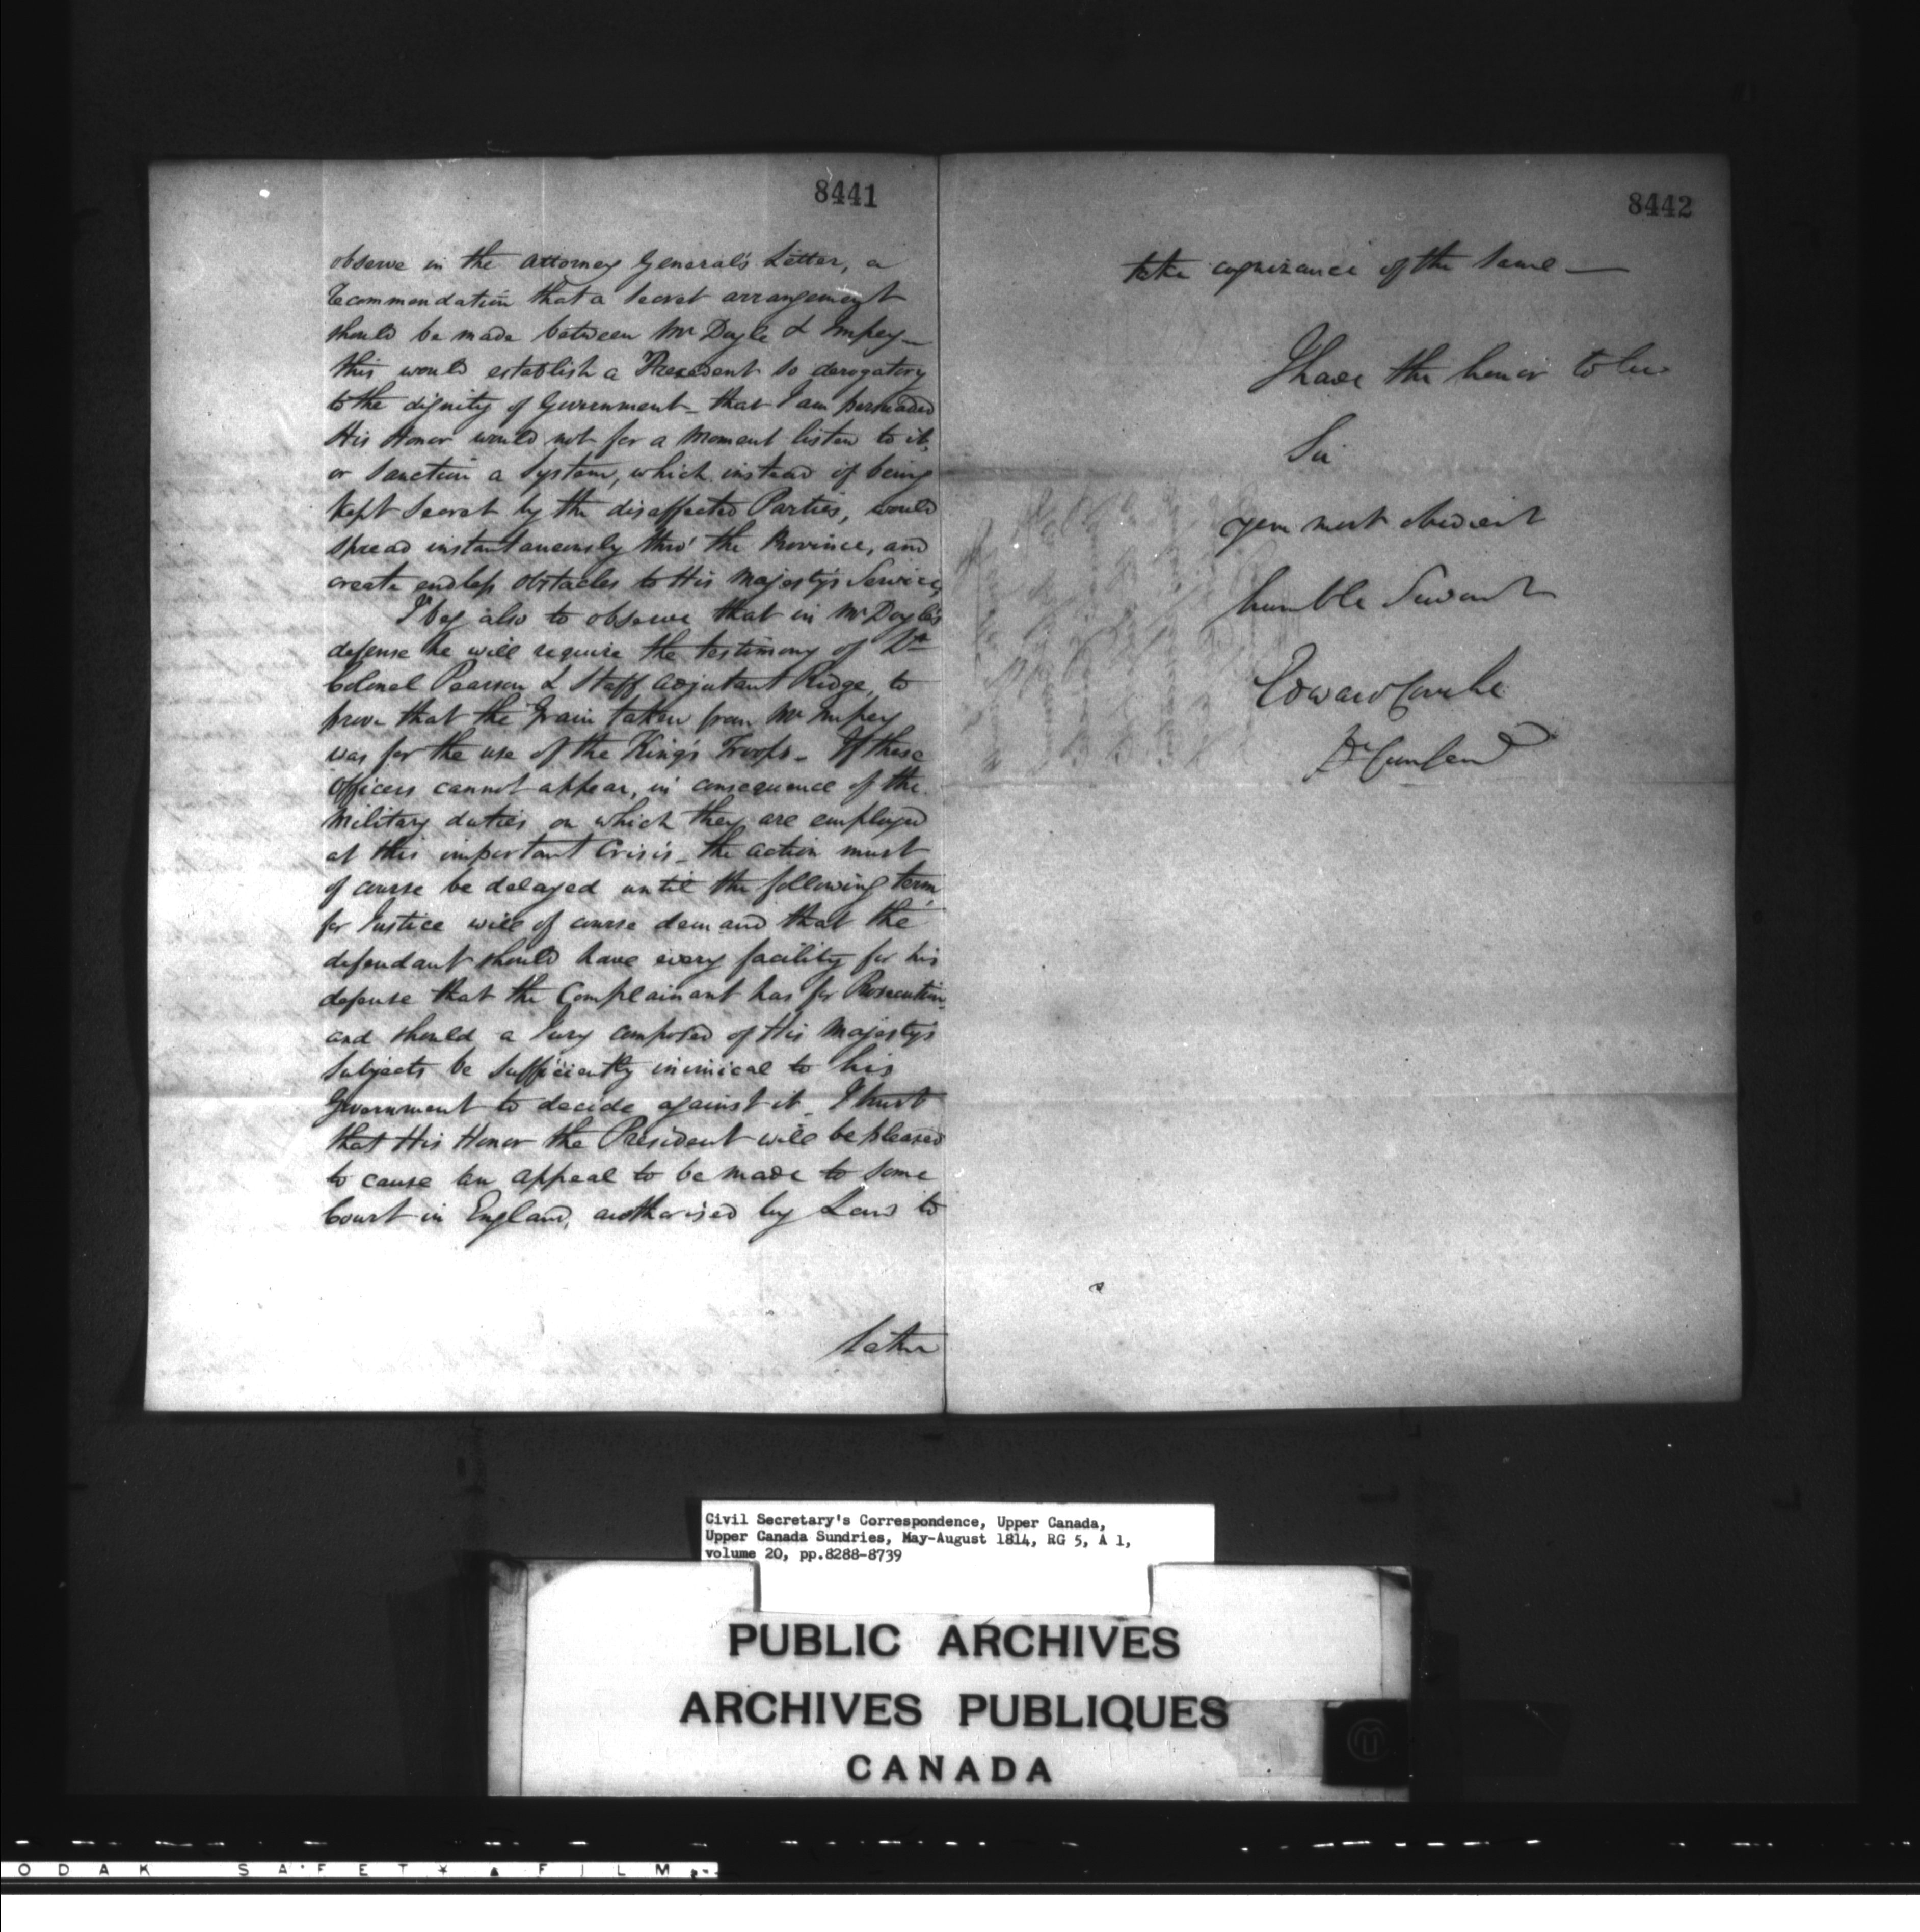 8441
observe in the Attorney General's Letter, a
recommendation that a secret arrangement
should be made between Mr Doyle & Empey—
this would establish a Precedent so derogatory
to the dignity of Government - that I am persuaded
His Honor would not for a moment listen to it,
or sanction a System, which instead of being
kept secret by the disaffected Parties, would
spread instantaneously thro' the Province, and
create endless obstacles to His Majesty's Service,
I beg also to observe that in Mr Doyle's
defense he will require the testimony of
Colonel Pearson & Staff Adjutant Ridge, to
prove that the Grain taken from Mr Empey
was for the use of the King's Troops. If these
Officers cannot appear, in consequence of the
Military duties on which they are employed
at this important Crisis - the action must
of course be delayed until the following term
for Justice will of course demand that the
defendant should have every facility for his
defense that the Complainant has for Prosecution
and should a Jury composed of His Majesty's
Subjects be sufficiently inimical to his
Government to decide against it - I trust
that His Honor the President will be pleased
to cause an appeal to be made to some
Court in England, authorised by Law to
8442
take cognizance of the same—
I have the honor to be
Sir
your most obedient
humble Servant
Edward
Civil Secretary's Correspondence, Upper Canada,
Upper Canada Sundries, May-August 1814, RG 5, A 1,
volume 20, pp.8288-8739
PUBLIC ARCHIVES
ARCHIVES PUBLIQUES
CANADA
ODAK SAFETY FILM